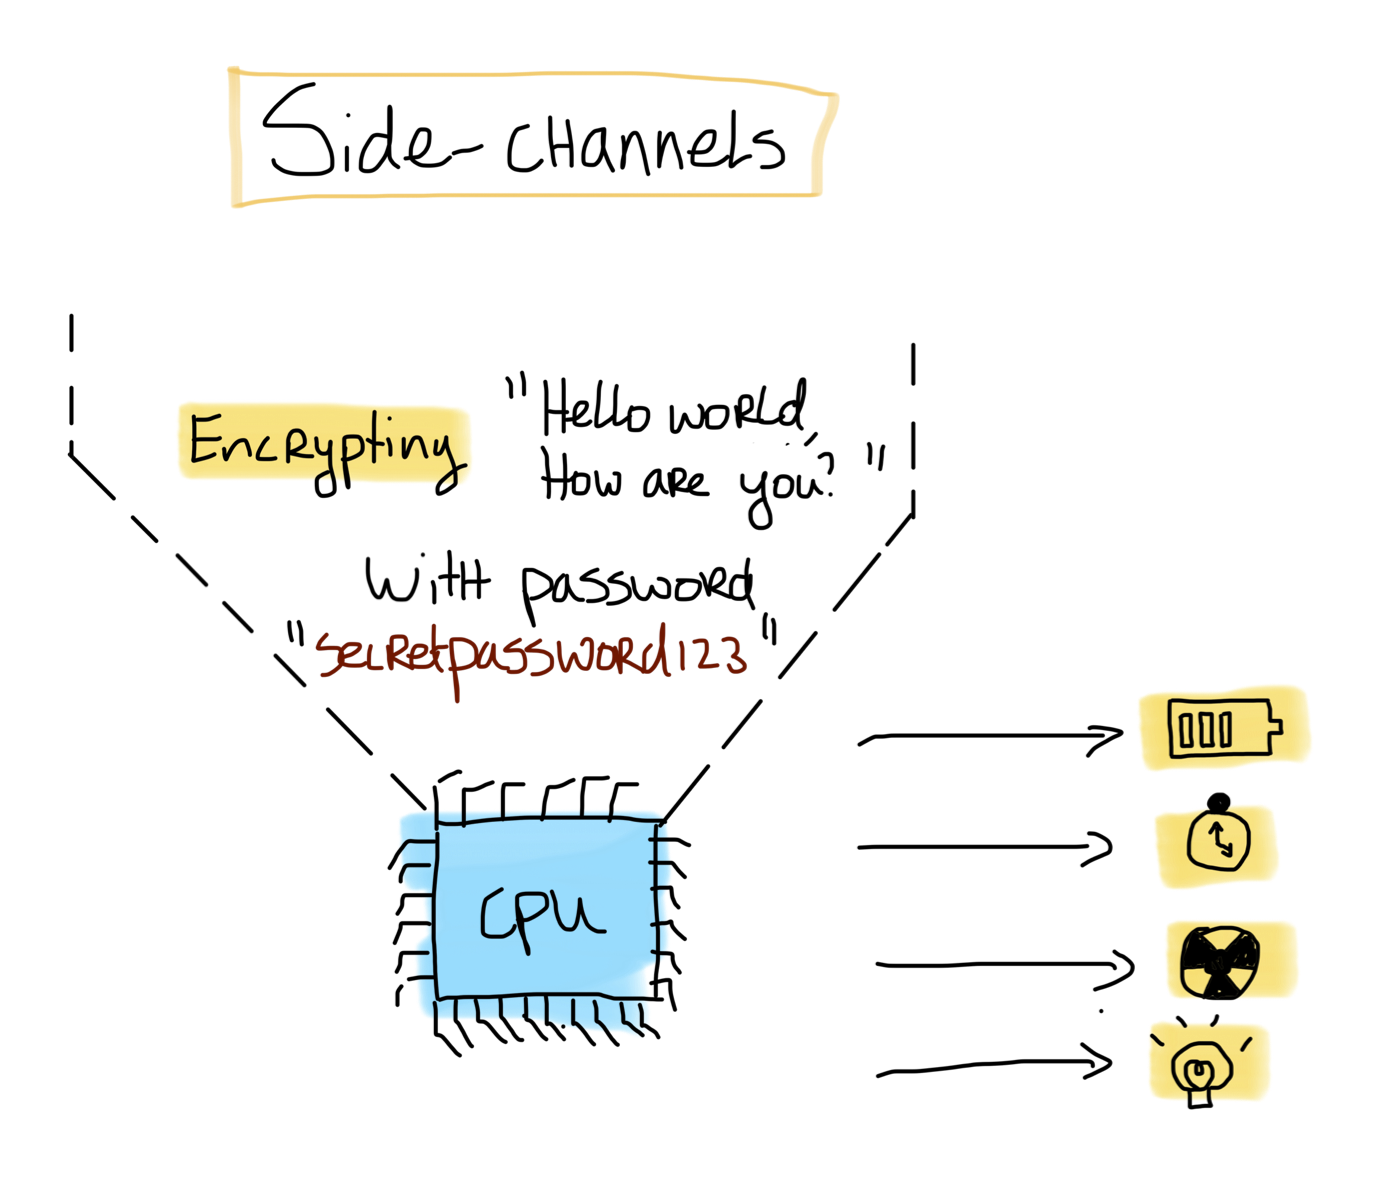 Side-channels
Encrypting "Hello world,
How are you? "
with password
"secretpassword123"
CPU